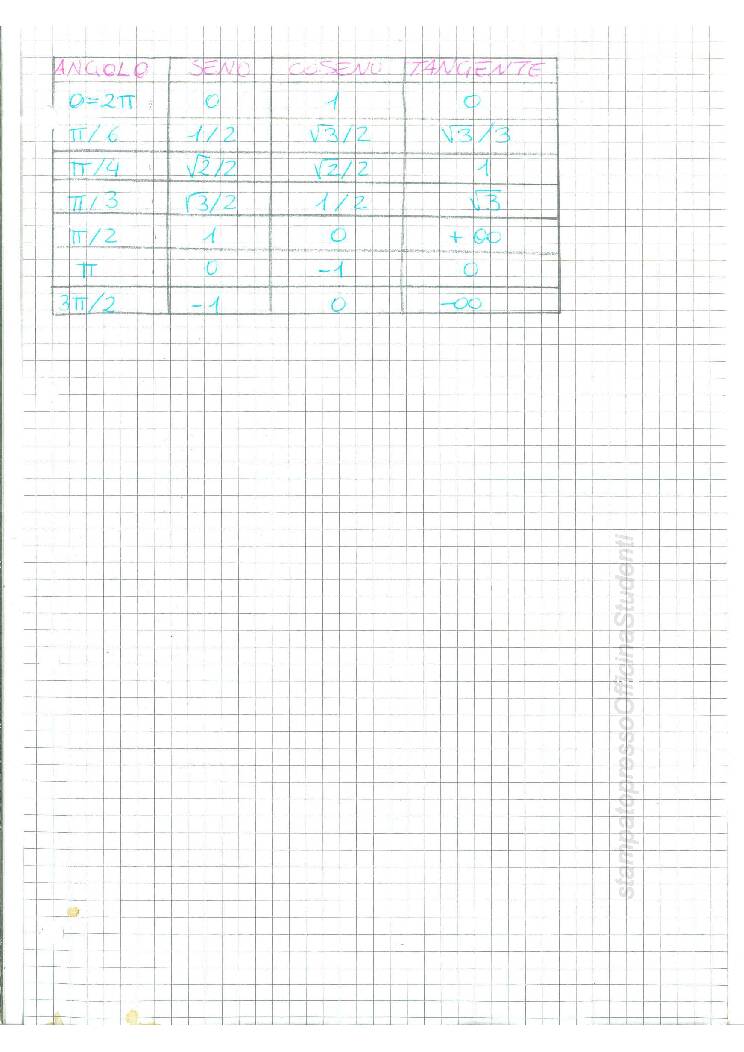 ANGOLO SENO COSENO TANGENTE
0=2π 0 1 0
π/6 1/2 √3/2 √3/3
π/4 √2/2 √2/2 1
π/3 √3/2 1/2 √3
π/2 1 0 +∞
π 0 -1 0
3π/2 -1 0 -∞
stampatopressoOfficinaStudenti